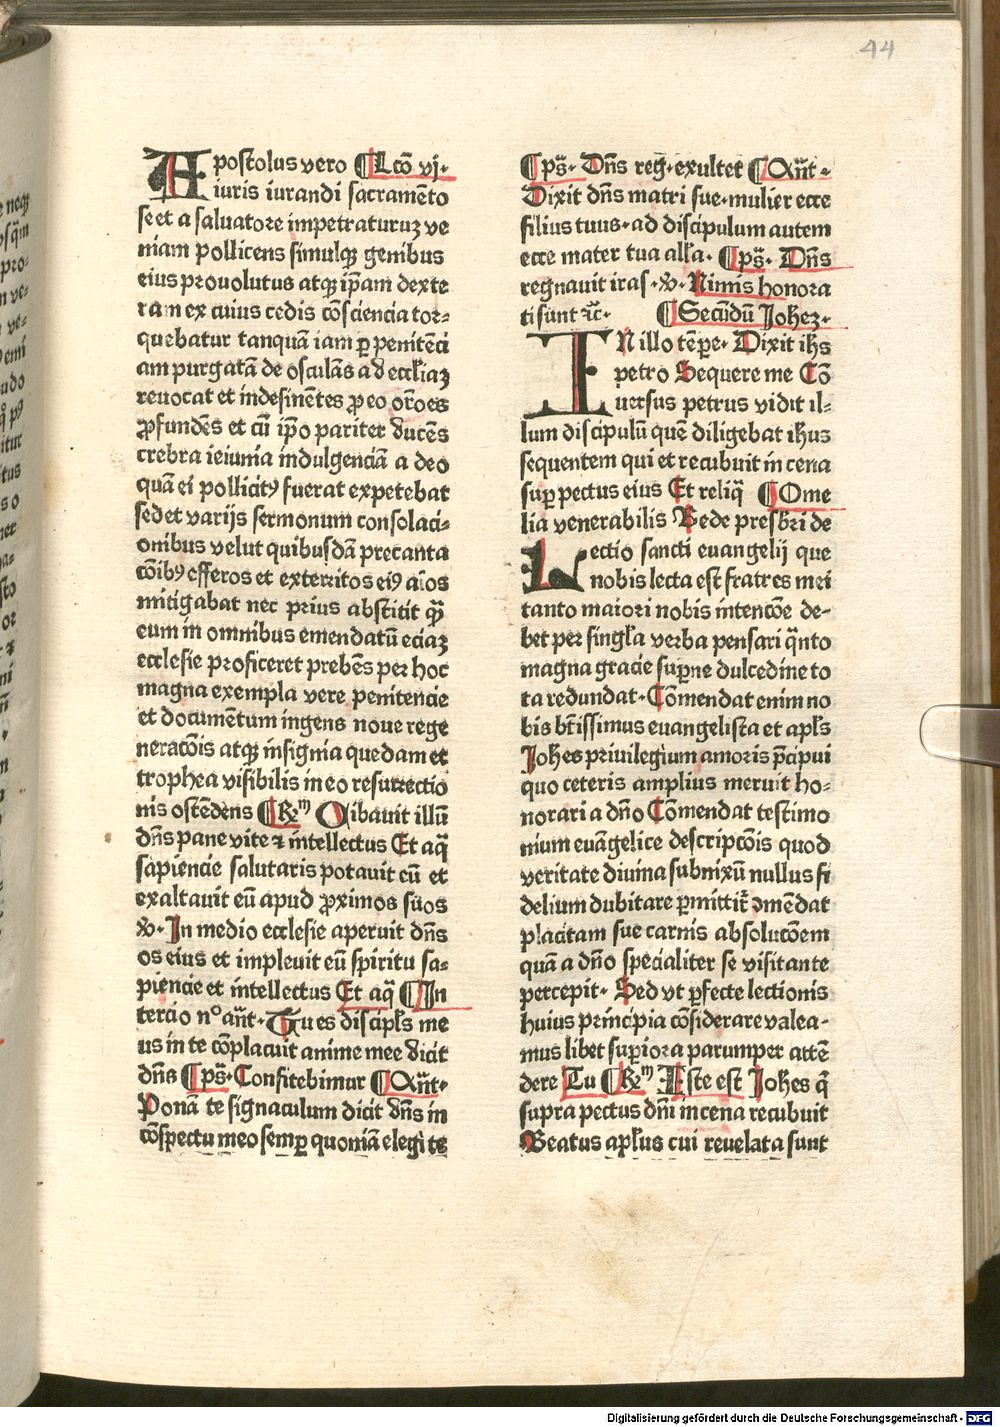 44
Apostolus vero ¶ Lcō vj·
iuris iurandi sacramēto
se et a saluatore impetraturuz ve
niam pollicens simulqꝫ genibus
eius prouolutus atqꝫ ip̄am dexte
ram ex cuius cedis cōsciencia tor⸗
quebatur tanquā iam ꝑ penitēci
am purgatā de osculās ad eccl̄iaꝫ
reuocat et indesinētes ꝓ eo or̄oes
ꝓfundēs et cū ip̄o pariter ducēs
crebra ieiunia indulgenciā a deo
quā ei pollicitꝰ fuerat expetebat
sed et varijs sermonum consolaci⸗
onibus velut quibusdā precanta
cōibꝰ efferos et exterritos eiꝰ aīos
mitigabat nec prius abstitit qꝫ̄
eum in omnibus emendatū eciaꝫ
ecclesie proficeret prebēs per hoc
magna exempla vere penitencie
et documētum ingens noue rege
neracōis atqꝫ insignia quedam et
trophea visibilis in eo resurrectio
nis ostēdens ¶ Rᵐ Cibauit illū
dn̄s pane vite ⁊ intellectus Et aq̄
sapiencie salutaris potauit eū et
exaltauit eū apud ꝓximos suos
℣· In medio ecclesie aperuit dn̄s
os eius et impleuit eū spiritu sa⸗
piencie et intellectus Et aq̄ ¶ In
tercio nº an̄t· Tu es discipl̄s me
us in te cōplacuit anime mee dicit
dn̄s ¶ ps̄· Confitebimur ¶ An̄t·
Ponā te signaculum dicit dn̄s in
cōspectu meo semꝑ quoniā elegi te
¶ ps̄· Dn̄s reḡ· exultet ¶ An̄t·
Dixit dn̄s matri sue· mulier ecce
filius tuus· ad discipulum autem
ecce mater tua all̄a· ¶ ps̄· Dn̄s
regnauit iras· ℣· Nimis honora
ti sunt ⁊c̄· ¶ Secūdū Johez·
IN illo tēpe· Dixit ih̄s
petro Sequere me Cō
uersus petrus vidit il⸗
lum discipulū quē diligebat ih̄us
sequentem qui et recubuit in cena
suꝑ pectus eius Et reliq̄ ¶ Ome
lia venerabilis Bede presb̄ri de
Lectio sancti euangelij que
nobis lecta est fratres mei
tanto maiori nobis intencōe de⸗
bet per singl̄a verba pensari q̄nto
magna gracie suꝑne dulcedine to
ta redundat· Cōmendat enim no
bis bt̄issimus euangelista et apl̄s
Johes priuilegium amoris p̄cipui
quo ceteris amplius meruit ho⸗
norari a dn̄o Cōmendat testimo
nium euāgelice descripcōis quod
veritate diuina subnixū nullus fi
delium dubitare ꝑmittit̄ ꝯmēdat
placitam sue carnis absolucōem
quā a dn̄o specialiter se visitante
percepit· Sed vt ꝑfecte lectionis
huius principia cōsiderare valea⸗
mus libet suꝑiora parumper attē
dere Tu ¶ Rᵐ Iste est Johes q̄
supra pectus dn̄i in cena recubuit
Beatus apl̄us cui reuelata sunt
Digitalisierung gefördert durch die Deutsche Forschungsgemeinschaft - DFG